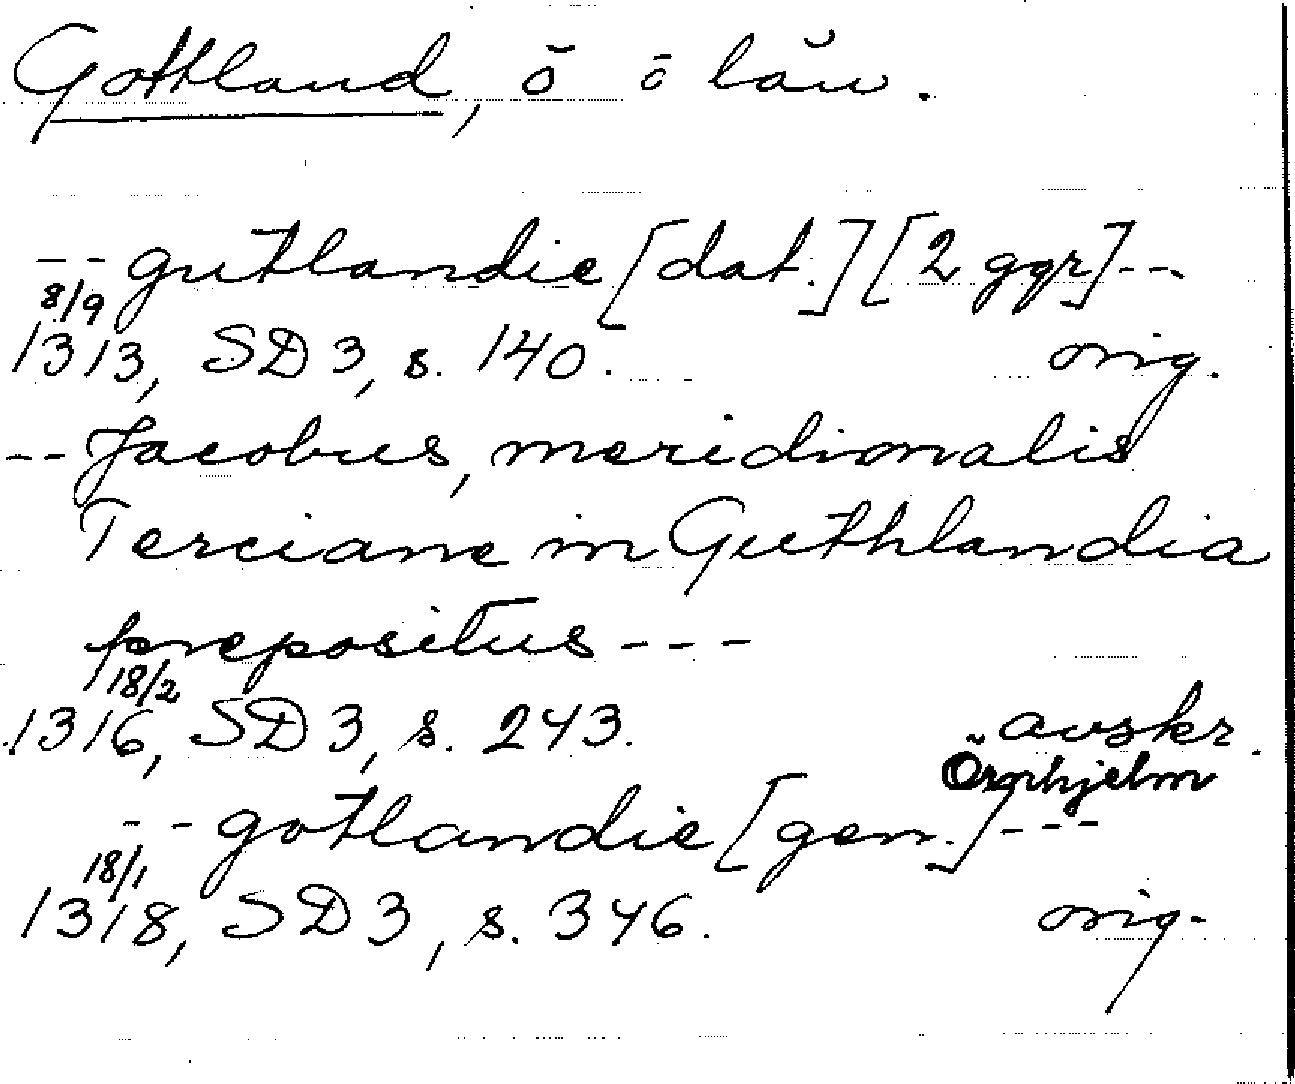 Gottland, ö o län.
-- gutlandie [dat.] [2 ggr] ---
8/9
1313, SD 3, s. 140. orig.
-- Jacobus, meridionalis
Terciane in Guthlandia
prepositus ---
18/2
1316, SD 3, s. 243. avskr.
Örnhjelm
-- gotlandie [gen.] ---
18/1
1318, SD 3, s. 346. orig.